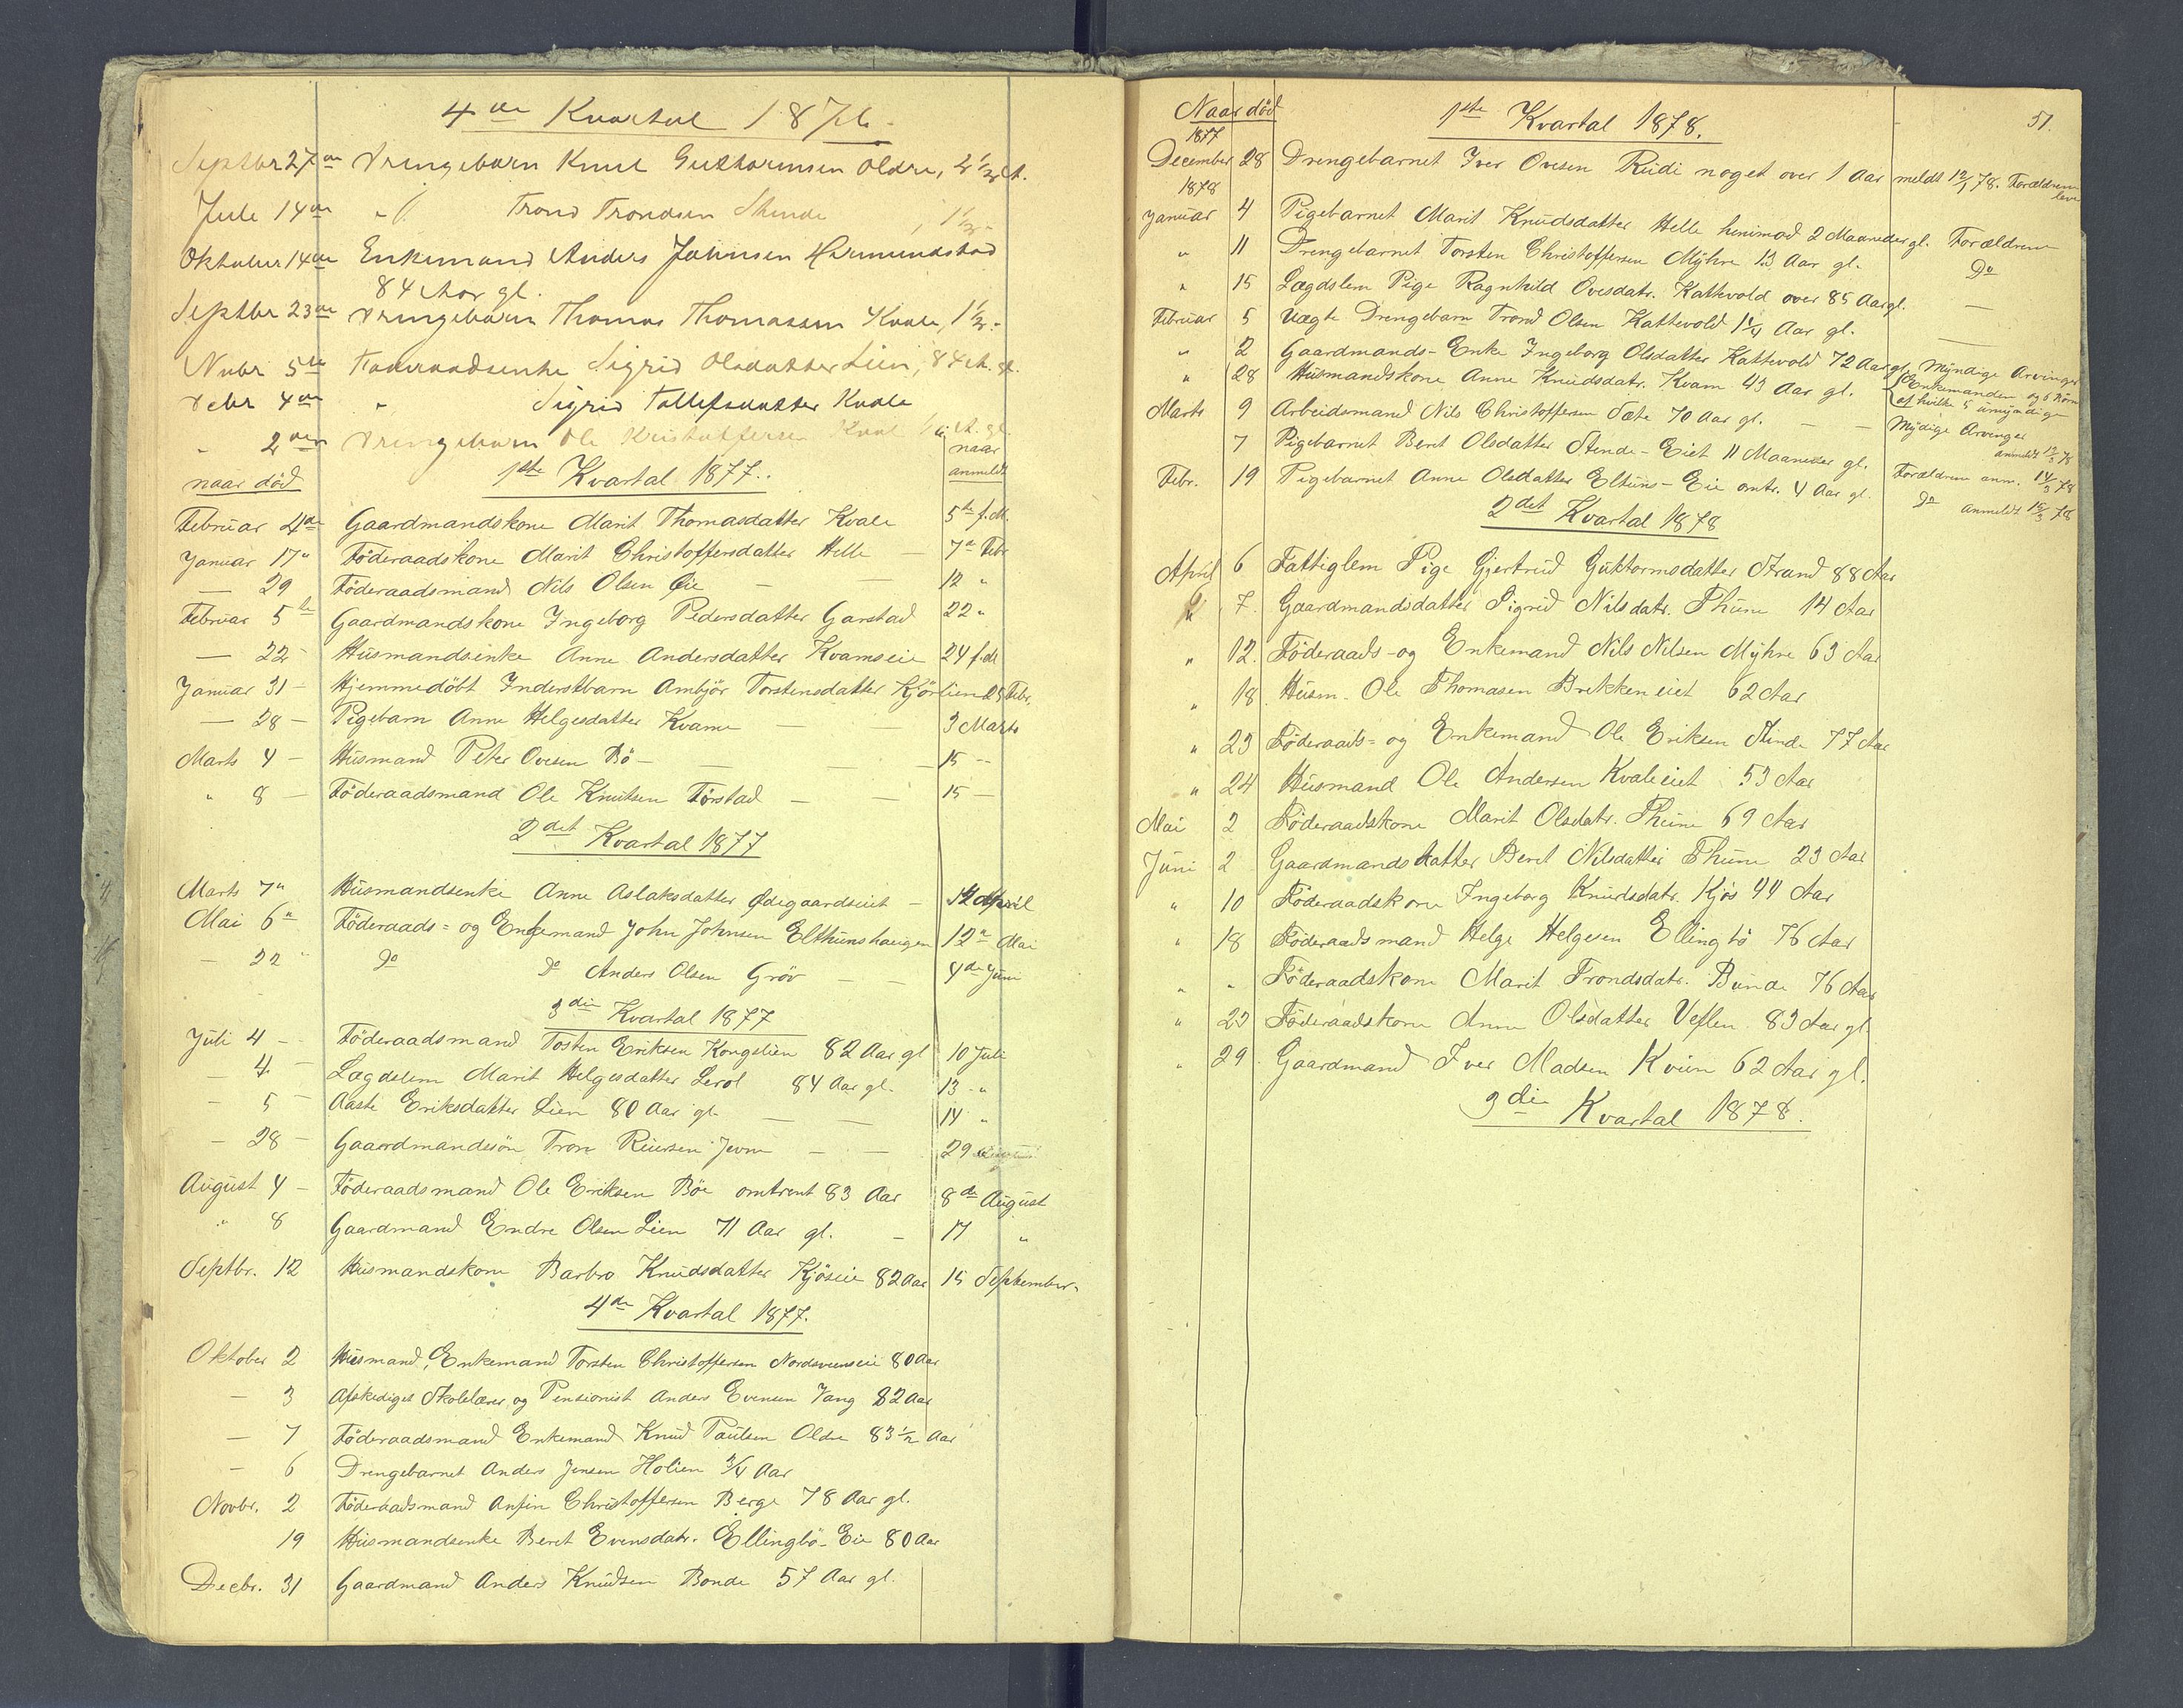 4de Kvartal 1876.
Septbr 27de Drengebarn Knut Guttormsen Oldre, 2 1/2 A.
Juli 14de " Trond Trondsen Stende 1 1/2 -
Oktober 14de Enkemand Anders Johnsen Hermundstad
84 Aar gl.
Septbr 23de Drengebarn Thomas Thomassen Kvale, 1 1/2 -
Nvbr 5te Föderaadsenke Sigrid Olsdatter Lien, 84 A. gl.
Debr 4de " Sigrid Tollefsdatter Kvale
" 2den Drengebarn Ole Kristoffersen Kvale
naar död 1ste Kvartal 1877. naar anmeldt
Februar 4de Gaardmandskone Marit Thomasdatter Kvale 5te f.M.
Januar 17" Föderaadskone Marit Christoffersdatter Helle — 7de Febr
— 29 Föderaadsmand Nils Olsen Öie — — 12 "
Februar 5te Gaardmandskone Ingeborg Pedersdatter Garstad 22 "
— 22 - Husmandsenke Anne Andersdatter Kvamseie 24 f.M
Januar 31 - Hjemmedöbt Inderstbarn Ambjör Torstensdatter Kjörlien 25 Febr.
— 28 - Pigebarn Anne Helgesdatter Kvame — — 3 Marts
Marts 4 - Husmand Peter Ovesen Bö - — — — 15 -
" 8 - Föderaadsmand Ole Knutsen Förstad — — 15 —
2det Kvartal 1877
Marts 7" Husmandsenke Anne Aslaksdatter Ödegaardseiet — 12 April
Mai 6" Föderaads= og Enkemand John Johnsen Elthunshaugen 12te Mai
— 22 " Do Do Anders Olsen Gröv — — 4de Juni
3die Kvartal 1877
Juli 4 - Föderaadsmand Tosten Eriksen Kongslien 82 Aar gl 10 Juli
— 4 - Lægdslem Marit Helgesdatter Lerol 84 Aar gl. 13 - "
— 5 - Aaste Eriksdatter Lien 80 Aar gl. — — 14 "
— 28 - Gaardmandssön Tron Reiersen Jevne — — 29
August 4 - Föderaadsmand Ole Eriksen Böe omtrent 83 Aar 8de August
" 8 Gaardmand Endre Olsen Lien 71 Aar gl. — 17 "
Septbr. 12 Husmandskone Barbro Knudsdatter Kjöseie 82 Aar 15 September
4de Kvartal 1877.
Oktober 2 Husmand, Enkemand Torsten Christoffersen Nordsveenseie 80 Aar
— 3 Afskediget Skolelærer og Pensionist Anders Evensen Vang 82 Aar
— 7 Föderaadsmand Enkemand Knud Paulsen Oldre 83 1/2 Aar
— 6 Drengebarnet Anders Jensen Holien 3/4 Aar
Novbr. 2 Föderaadsmand Anfin Christoffersen Berge 78 Aar gl.
19 Husmandsenke Beret Evensdatr. Ellingbö - Eie 80 Aar
Decbr. 31 Gaardmand Anders Knudsen Bonde 57 Aar gl.
51.
Naar död 1ste Kvartal 1878.
1877
December 28 Drengebarnet Iver Ovesen Rudi noget over 1 Aar meldt 12/1 78. Forældrene leve
1878
Januar 4 Pigebarnet Marit Knudsdatter Helle henimod 2 Maaneder gl. Forældrene
" 11 Drengebarnet Torsten Christoffersen Myhre 13 Aar gl. Do
" 15 Lægdslem Pige Ragnhild Ovesdatr. Kattevold over 85 Aar gl. —
Februar 5 Uægte Drengebarn Trond Olsen Kattevold 1 1/4 Aar gl. —
" 2 Gaardmands-Enke Ingeborg Olsdatter Kattevold 72 Aar gl. Myndige Arvinger
" 28 Husmandskone Anne Knudsdatr. Kvam 43 Aar gl. Enkemanden og 6 Börn
af hvilke 5 umyndige
Marts 9 Arbeidsmand Nils Christoffersen Sæte 70 Aar gl. — — Mydige Arvinger
7 Pigebarnet Beret Olsdatter Stende - Eiet 11 Maaneder gl. anmeldt 12/3 78
Febr. 19 Pigebarnet Anne Olsdatter Eltuns - Eie omtr. 4 Aar gl. Forældrene anm. 14/3 78
Do anmeldt 15/3 78
2det Kvartal 1878
April 6 Fattiglem Pige Gjertrud Guttormsdatter Strand 88 Aar
" 7. Gaardmandsdatter Sigrid Nilsdatr. Thune 14 Aar
" 12. Föderaads- og Enkemand Nils Nilsen Myhre 63 Aar
" 18. Husm. Ole Thomasen Brekkeneiet 62 Aar
" 23 Föderaads= og Enkemand Ole Eriksen Stende 77 Aar
" 24 Husmand Ole Andersen Kvaleeiet 53 Aar
Mai 2 Föderaadskone Marit Olsdatr. Thune 69 Aar
Juni 2 Gaardmandsdatter Beret Nilsdatter Thune 23 Aar
" 10 Föderaadskone Ingeborg Knudsdatr. Kjös 44 Aar
" 18 Föderaadsmand Helge Helgesen Ellingbö 76 Aar
" " Föderaadskone Marit Trondsdatr. Bunde 76 Aar
" 23 Föderaadskone Anne Olsdatter Veflen 83 Aar gl.
" 29. Gaardmand Iver Madsen Kvien 62 Aar gl.
3die Kvartal 1878.